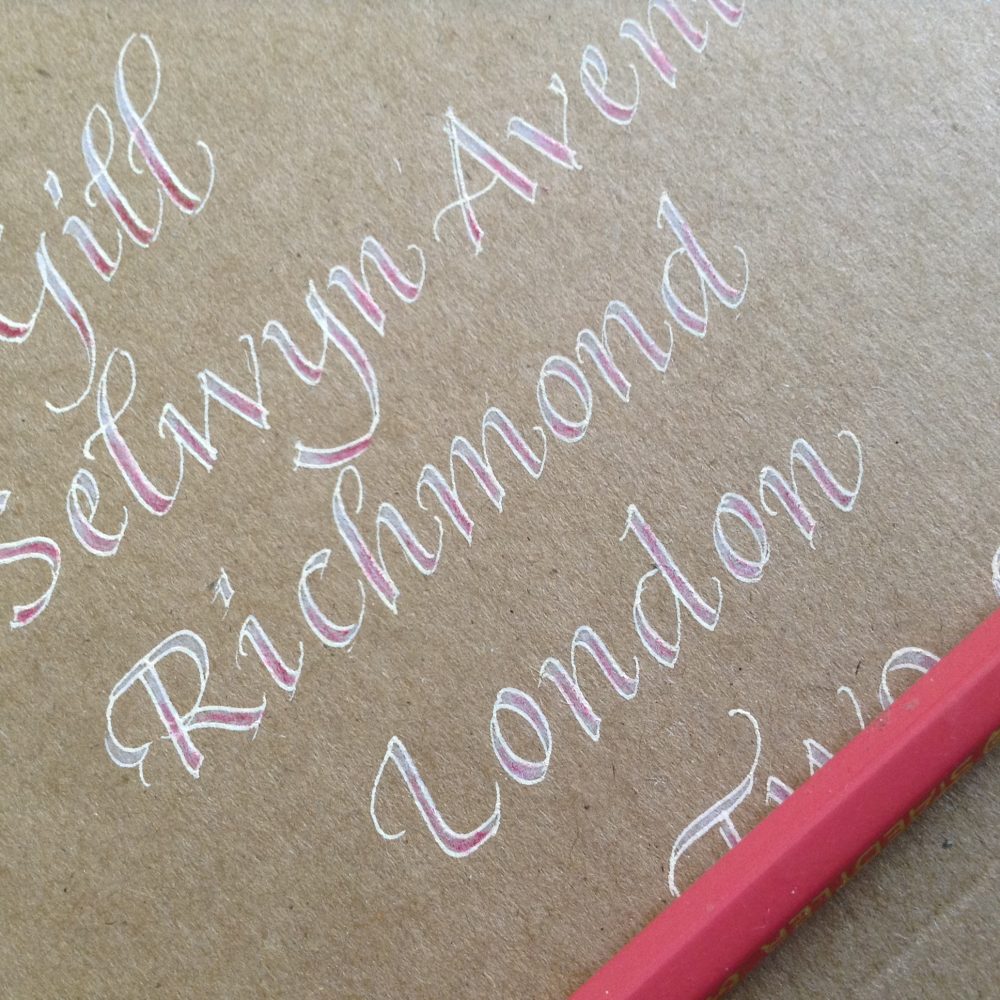 gill
Selwyn Aven
Richmond
London
Tw